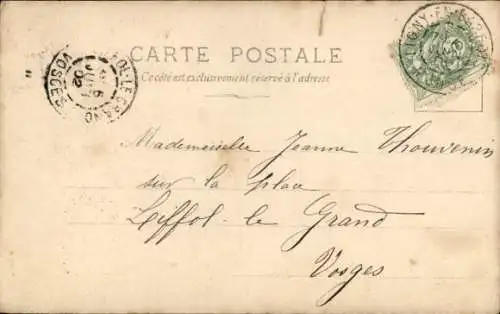 LIGNY-EN-BARROIS
CARTE POSTALE
Ce côté est exclusivement réservé à l'adresse
LIFFOL-LE-GRAND
6
JUIN
02
VOSGES
Mademoiselle Jeanne Thouvenin
sur la place
Liffol-le-Grand
Vosges